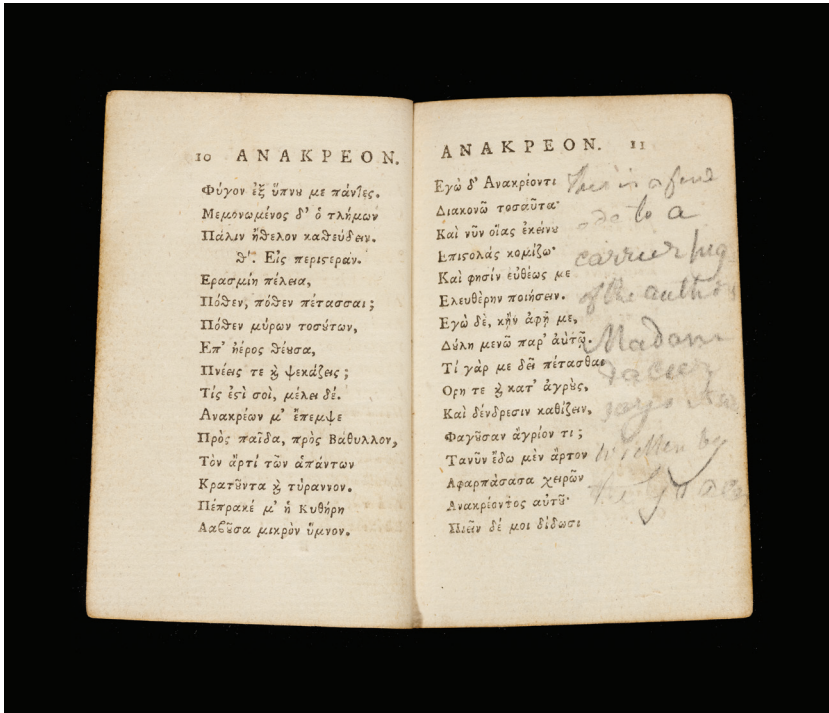 10 ΑΝΑΚΡΕΟΝ.
Φύγον ἐξ ὕπνȣ με πάντες.
Μεμονωμένος δ' ὁ τλήμων
Πάλιν ἤθελον καθεύδειν.
θ'. Εἰς περιϛεράν.
Ερασμίη πέλεια,
Πόθεν, πόθεν πέτασσαι;
Πόθεν μύρων τοσȣ́των,
Επ' ἠέρος θέȣσα,
Πνέεις τε ϗ ψεκάζεις;
Τίς ἐϛί σοὶ, μέλει δέ.
Ανακρέων μ' ἔπεμψε
Πρὸς παῖδα, πρὸς Βάθυλλον,
Τὸν ἄρτί τῶν ἁπάντων
Κρατȣ͂ντα ϗ τύραννον.
Πέπρακέ μ' ἡ Κυθήρη
Λαβȣ͂σα μικρὸν ὕμνον.
ΑΝΑΚΡΕΟΝ. 11
Εγὼ δ' Ανακρέοντι
Διακονῶ τοσαῦτα·
Καὶ νῦν οἵας ἐκείνȣ
Επιϛολὰς κομίζω·
Καὶ φησίν εὐθέως με
Ελευθέρην ποιήσειν.
Εγὼ δὲ, κἢν ἀφῇ με,
Δȣ́λη μενῶ παρ' ἀὐτῷ.
Τί γὰρ με δεῖ πέτασθαι
Ορη τε ϗ κατ' ἀγρȣ̀ς,
Καὶ δένδρεσιν καθίζειν,
Φαγȣ͂σαν ἄγριόν τι;
Τανῦν ἔδω μὲν ἄρτον
Αφαρπάσασα χειρῶν
Ανακρέοντος αὐτȣ͂·
Πιεῖν δέ μοι δίδωσι
This is a fine
ode to a
carrier pig
of the author
Madam
Dacier
says
written by